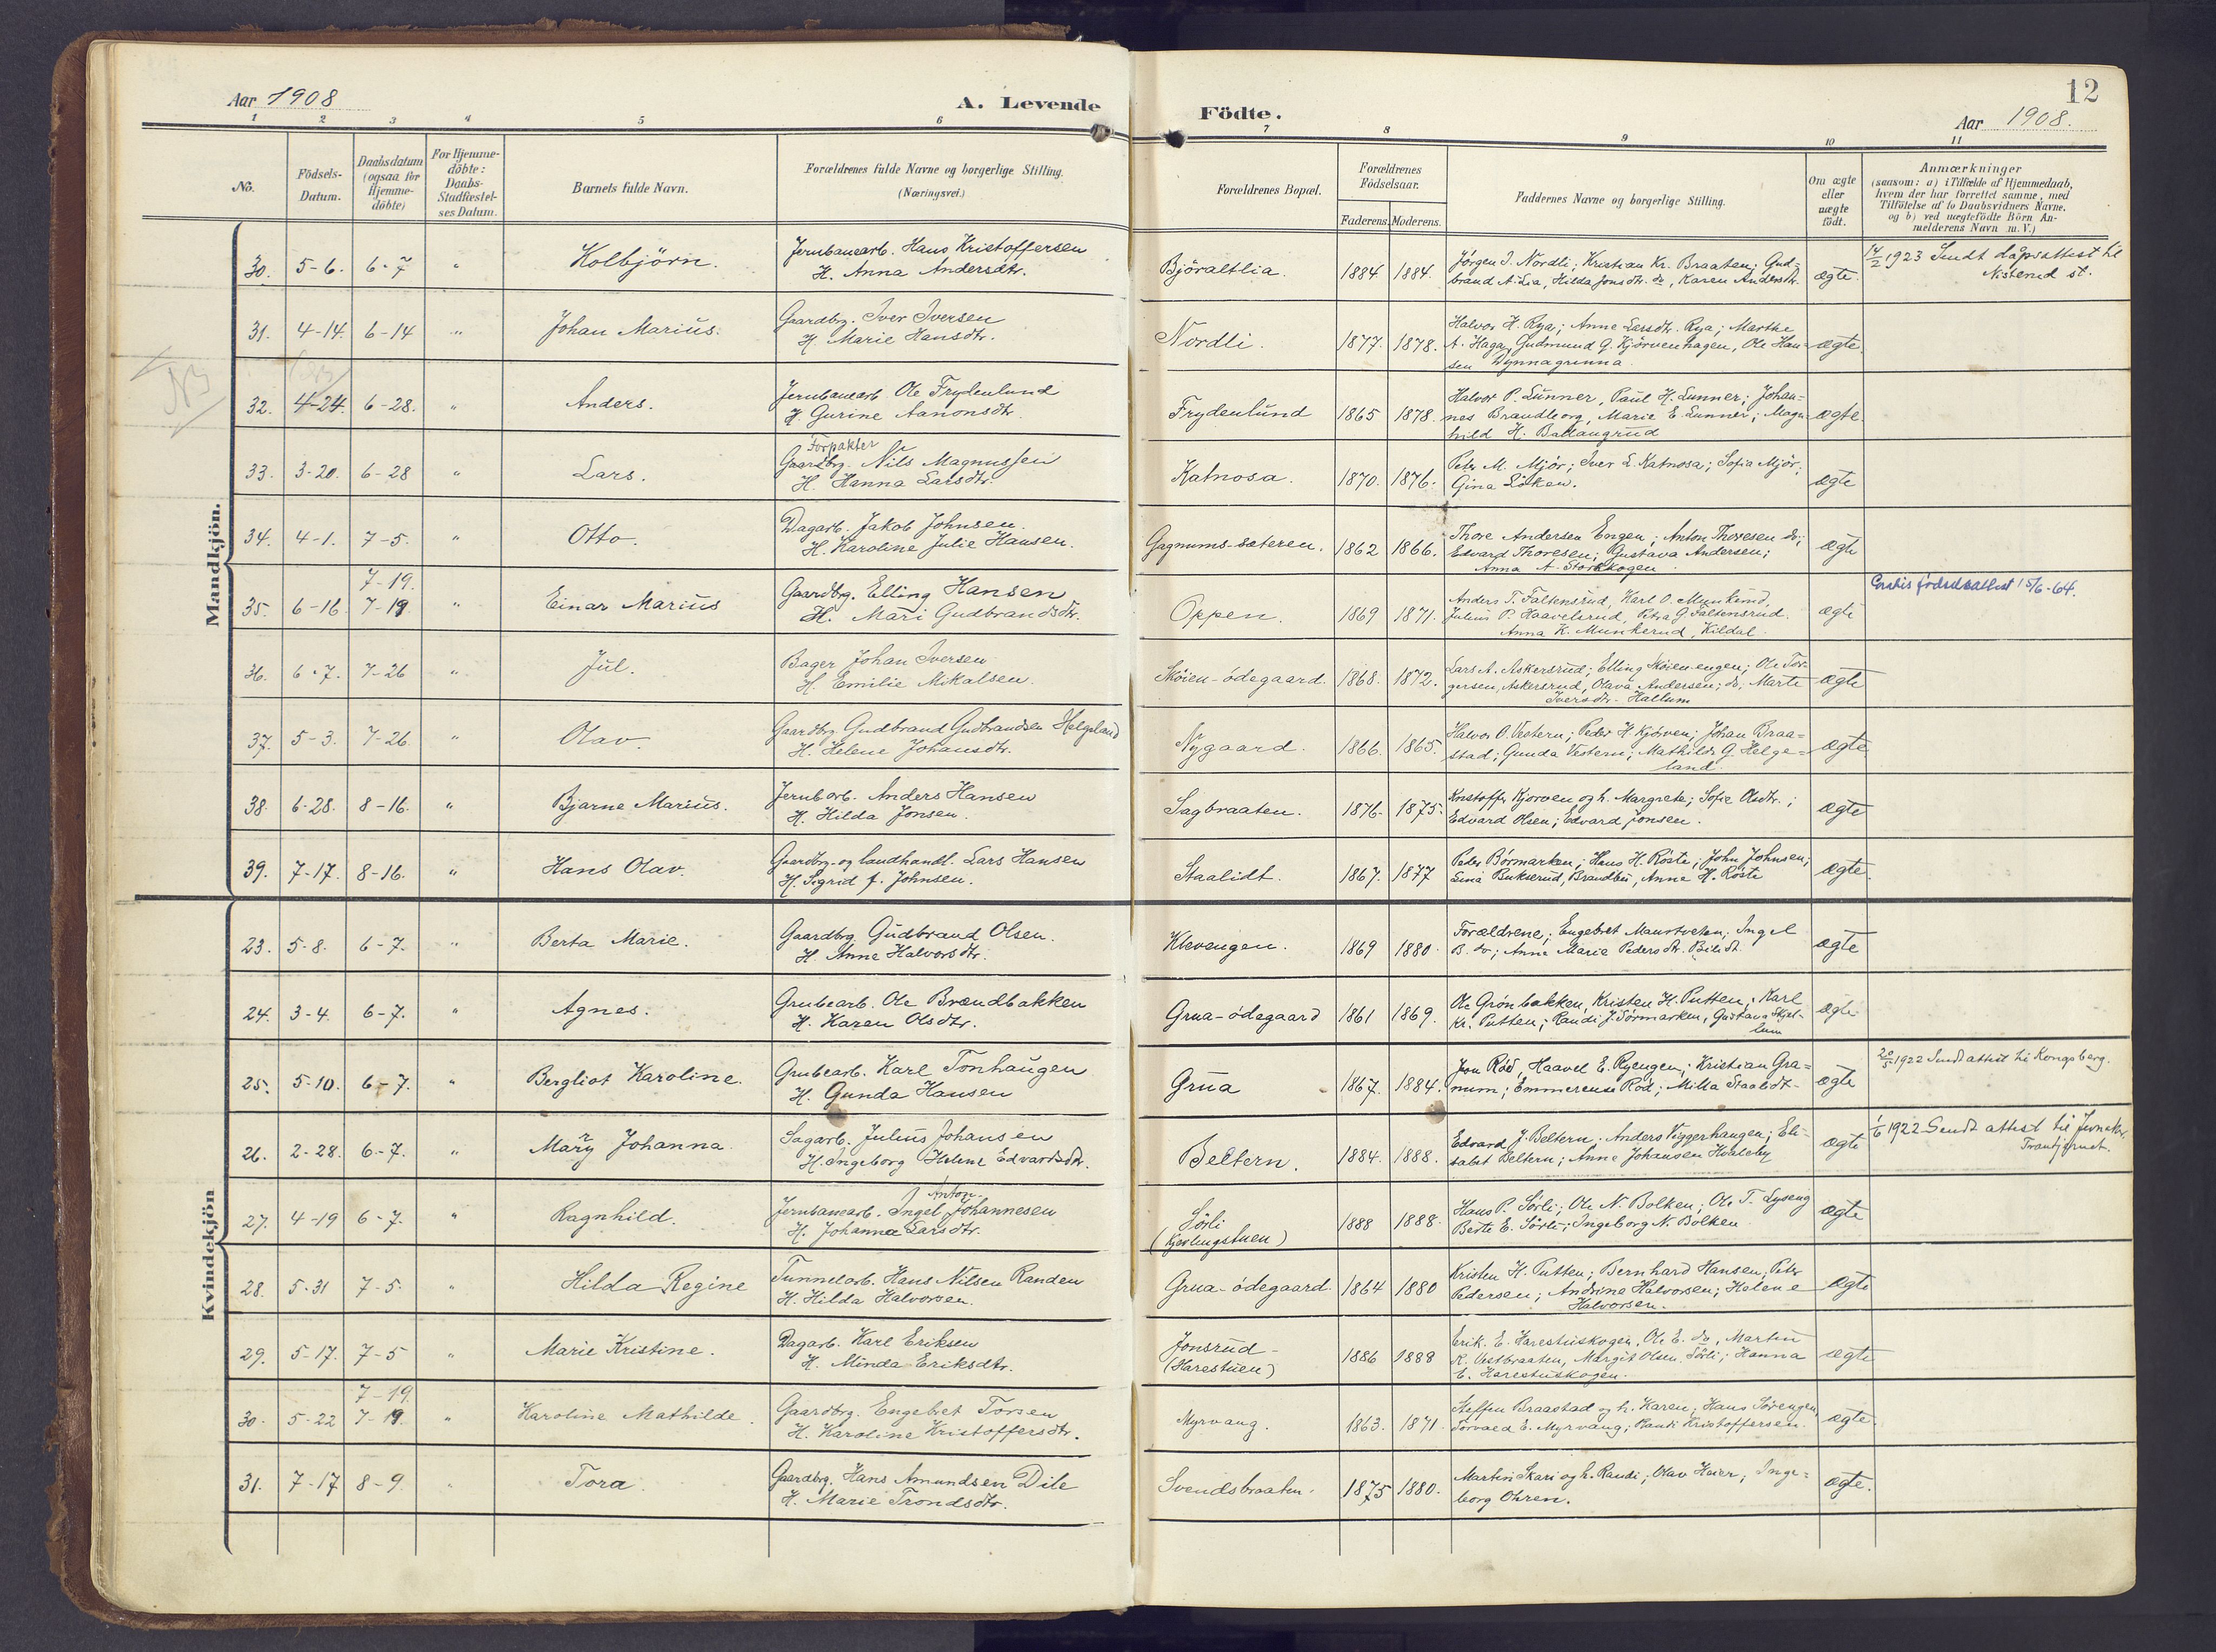 12
Aar 1908
A. Levende
Födte.
Aar 1908.
1 2 3 4 5 6 7 8 9 10 11
No.
Födsels-
Datum.
Daabsdatum
(ogsaa for
Hjemme-
döbte)
For Hjemme-
döbte:
Daabs-
Stadfæstel-
ses Datum.
Barnets fulde Navn.
Forældrenes fulde Navne og borgerlige Stilling.
(Næringsvei.)
Forældrenes Bopæl.
Forældrenes
Födselsaar.
Faderens. Moderens.
Faddernes Navne og borgerlige Stilling.
Om ægte
eller
uægte
födt.
Anmærkninger
(saasom: a) i Tilfælde af Hjemmedaab,
hvem der har forrettet samme, med
Tilföielse af to Daabsvidners Navne,
og b) ved uægtefödte Börn An-
melderens Navn m. V.)
Mandkjön.
30. 5-6. 6-7 " Kolbjörn.
Jernbanearb. Hans Kristoffersen
H. Anna Andersdtr.
Björaltlia. 1884 1884.
Jörgen J. Nordli; Kristian Kr. Braaten; Gud-
brand A. Lia, Hilda Jonsdtr. do, Karen Andersdtr.
ægte.
14/2 1923 Sendt dåpsattest til
Nisterud st.
31. 4-14. 6-14 " Johan Marius.
Gaardbrg. Iver Iversen
H. Marie Hansdtr.
Nordli. 1877. 1878.
Halvor H. Rya; Anne Larsdtr. Rya; Marthe
A. Haga, Gudmund G. Kjörvenhagen, Ole Han-
sen Dynnagrinna
ægte.
NB
32. 4-24. 6-28. " Anders.
Jernbanearb Ole Frydenlund
H Gurine Aanonsdtr.
Frydenlund 1865 1878.
Halvor P. Lunner, Paul H. Lunner; Johan-
nes Brandborg, Marie E. Lunner; Magn-
hild H. Ballangrud
ægte.
33. 3-20. 6-28 " Lars.
Forpakter
Gaardbrg. Nils Magnussen
H. Hanna Larsdtr.
Katnosa. 1870. 1876.
Peter M. Mjör; Iver L. Katnosa; Sofia Mjör;
Gina Löken.
ægte
34. 4-1. 7-5. " Otto.
Dagarb. Jakob Johnsen.
H. Karoline Julie Hansen.
Gagnums-sæteren. 1862 1866.
Thore Andersen Engen; Anton Thoresen do;
Edvard Thoresen; Gustava Andersen;
Anna A. Storskogen.
ægte
7-19.
35. 6-16. 7-19 " Einar Marius
Gaardbrg. Elling Hansen
H. Mari Gudbrandsdtr.
Oppen. 1869 1871.
Anders T. Faltensrud, Karl O. Munkerud,
Julius P. Haavelsrud, Petra G Faltensrud.
Anna K. Munkerud, Kildal.
ægte
Gratis fødselsattest 15/6-64.
36. 6-7. 7-26 " Jul.
Bager Johan Iversen
H. Emilie Mikalsen.
Sköien-ödegaard. 1868. 1872.
Lars A. Askersrud; Elling Sköienengen; Ole Tor-
gersen, Askersrud, Olava Andersen; do, Marte
Iversdtr. Hallum
ægte
37. 5-3. 7-26. " Olav.
Gaardbrg Gudbrand Gudbrandsen Helgeland
H. Helene Johansdtr.
Nygaard. 1866. 1865.
Halvor O. Vestern; Peder H Kjörven; Johan Braa-
stad; Gunda Vestern; Mathilde G. Helge-
land.
ægte.
38. 6-28. 8-16. " Bjarne Marius.
Jernb arb. Anders Hansen
H. Hilda Jonsen.
Sagbraaten. 1876- 1875.
Kristoffer Kjorven og h. Margrete; Sofie Olsdtr.;
Edvard Olsen; Edvard Jonsen.
ægte
39. 7-17. 8-16. " Hans Olav.
Gaardbrg. og landhandl. Lars Hansen
H. Sigrid f. Johnsen.
Staalidt. 1867. 1877
Peder Börmarken; Hans H. Röste; John Johnsen;
Lina Bukserud, Brandbu, Anne H. Röste
ægte.
Kvindekjön
23. 5-8. 6-7. " Berta Marie.
Gaardbrg Gudbrand Olsen.
H. Anne Halvorsdtr.
Klevengen. 1869 1880.
Forældrene; Engebret Maurtvetan; Ingel
B. do; Anne Marie Pedersdtr. Bilidt.
ægte
24. 3-4. 6-7. " Agnes.
Grubearb. Ole Brændbakken
H. Karen Olsdtr.
Grua-ödegaard 1861 1869.
Ole Grönbakken, Kristen H. Putten; Karl
Kr. Putten; Randi J. Sörmarken, Gustava Skjel-
lum
ægte.
25. 5-10. 6-7. " Bergliot Karoline.
Grubearb. Karl Tonhaugen
H. Gunda Hansen
Grua 1867. 1884.
Jon Röd, Haavel E. Ryengen; Kristian Gra-
num; Emmerense Röd; Milla Staalidt-
ægte
20/5 1922 Sendt attest til Kongsberg.
26. 2-28. 6-7. " Mary Johanna.
Sagarb. Julius Johansen
H. Ingeborg Helene Edvardsdtr.
Beltern. 1884. 1888.
Edvard J. Beltern; Anders Viggerhaugen; Eli-
sabet Beltern; Anne Johansen Hvaleby
ægte
1/6 1922 Sendt attest til Jevnaker.
27. 4-19 6-7. " Ragnhild.
Anton.
Jernbanearb. Ingel Johannesen
H. Johanna Larsdtr.
Sörli
(Kjerlingstuen) 1888 1888.
Hans P. Sörli; Ole N. Bolken; Ole T. Lyseng
Berte E. Sörli; Ingeborg N. Bolken
ægte
28. 5-31 7-5. " Hilda Regine
Tunnelarb. Hans Nilsen Randen
H. Hilda Halvorsen.
Grua-ödegaard. 1864 1880
Kristen H. Putten; Bernhard Hansen, Peter
Pedersen; Andrine Halvorsen; Helene
Halvorsen.
ægte
29. 5-17. 7-5 " Marie Kristine.
Dagarb. Karl Eriksen
H. Minda Eriksdtr.
Jonsrud-
(Harestuen) 1886 1888
Erik. E. Harestuskogen, Ole E. do, Martin
K. Vestbraaten, Margit Olsen Sörli; Hanna
E. Harestuskogen.
ægte
7-19.
30. 5-22 7-19. " Karoline Mathilde.
Gaardbrg. Engebret Torsen
H. Karoline Kristoffersdtr.
Myrvang. 1863. 1871.
Steffen Braastad og h. Karen; Hans Sörengen
Torvald E. Myrvang; Randi Kristoffersen
ægte.
31. 7-17 8-9. " Tora.
Gaardbrg. Hans Amundsen Dile
H. Marie Trondsdtr.
Svendsbraaten. 1875 1880.
Martin Skari og h. Randi; Olav Haier; Inge-
borg Ohren.
ægte.